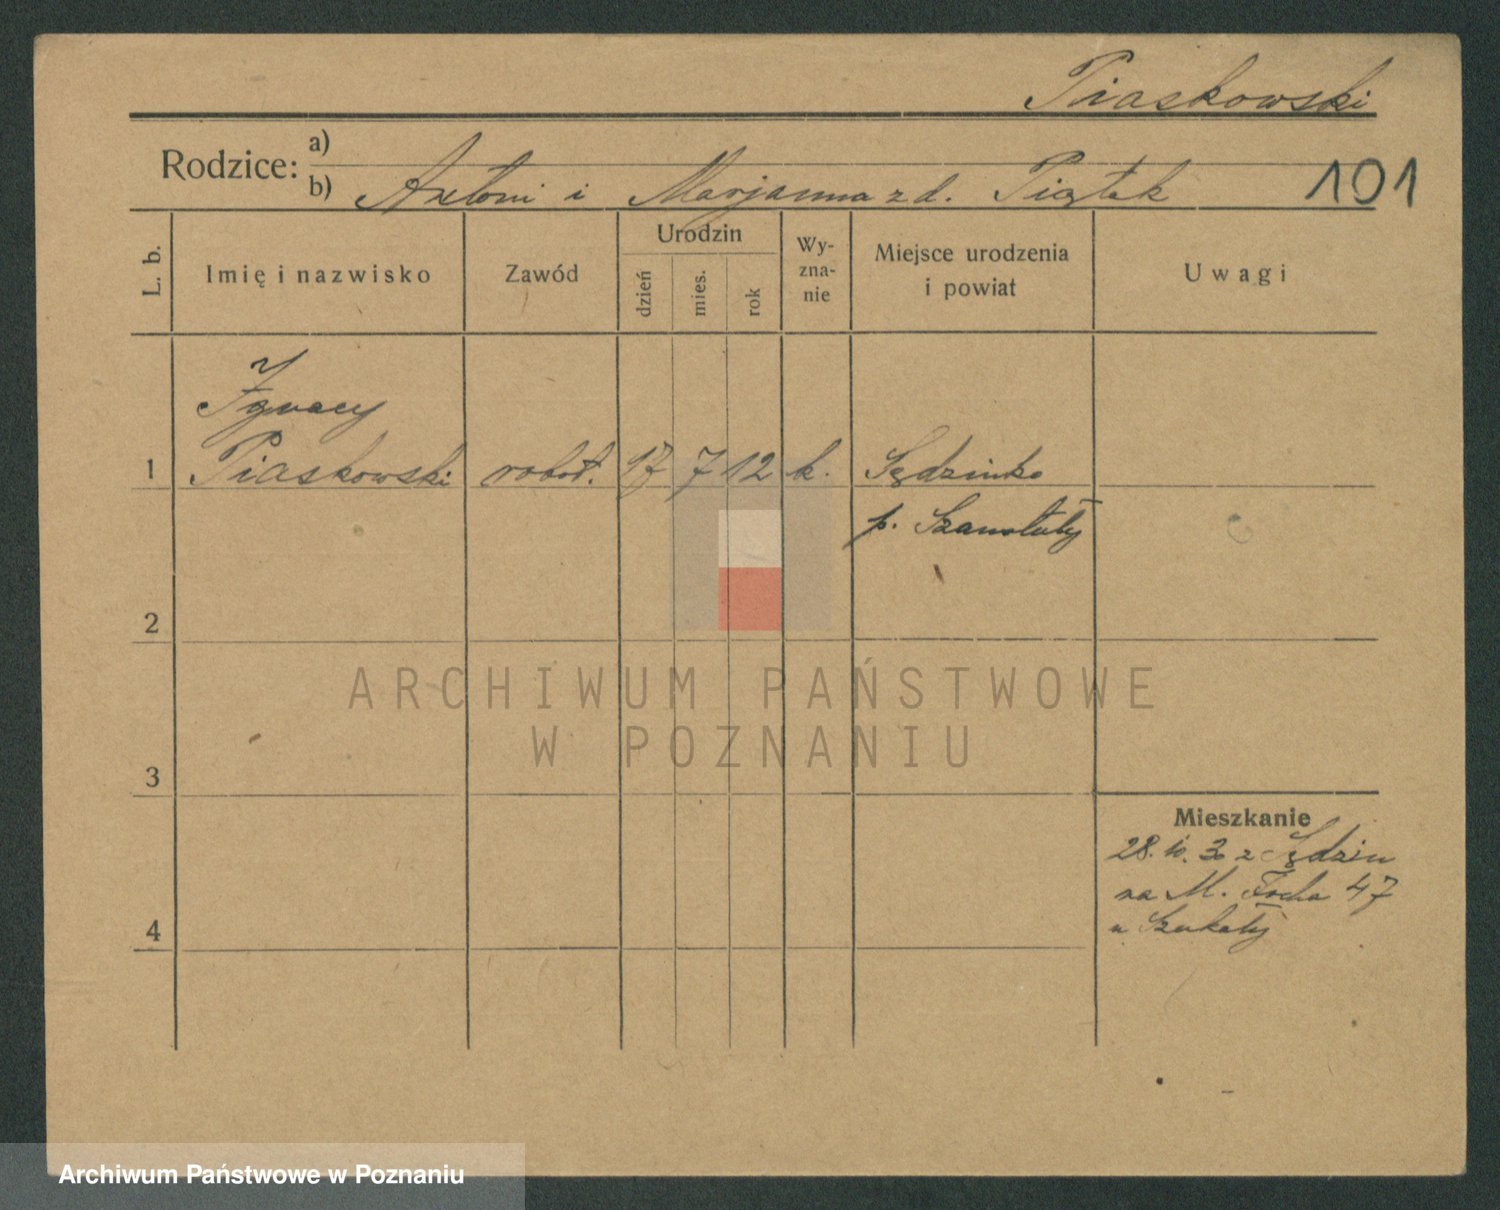 Piaskowski
Rodzice: a)
b) Antoni i Marjanna z d. Piątek
101
L. b.
Imię i nazwisko
Zawód
Urodzin
dzień
mies.
rok
Wy-
zna-
nie
Miejsce urodzenia
i powiat
Uwagi
Ignacy
1 Piaskowski robot. 17 7 12 k. Sędzinko
p. Szamotuły
2
3
4
Mieszkanie
28. 10. 30 z Sędzin
na M. Focha 47
u Szukały
ARCHIWUM PAŃSTWOWE
W POZNANIU
Archiwum Państwowe w Poznaniu